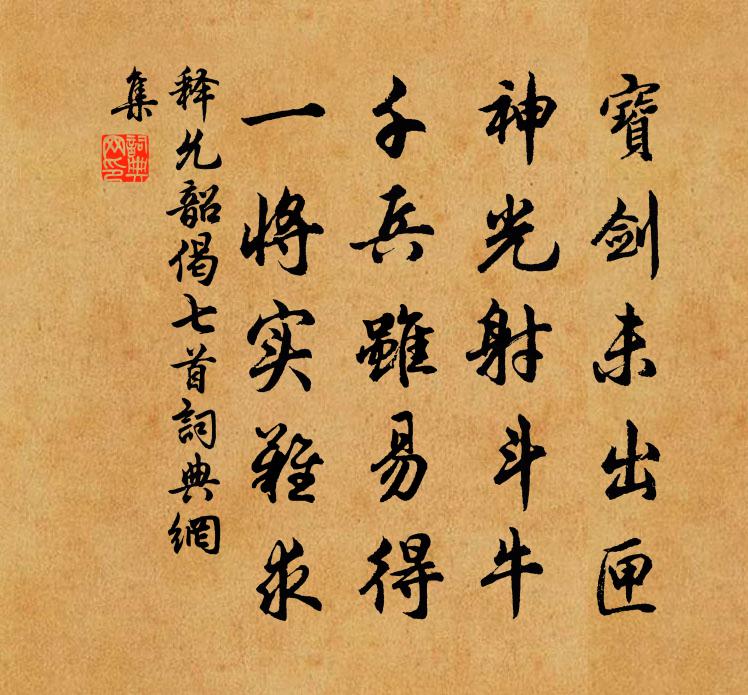 寶劍未出匣
神光射斗牛
千兵雖易得
一将实難求
释允韶偈七首詞典網
集
詞典
网印